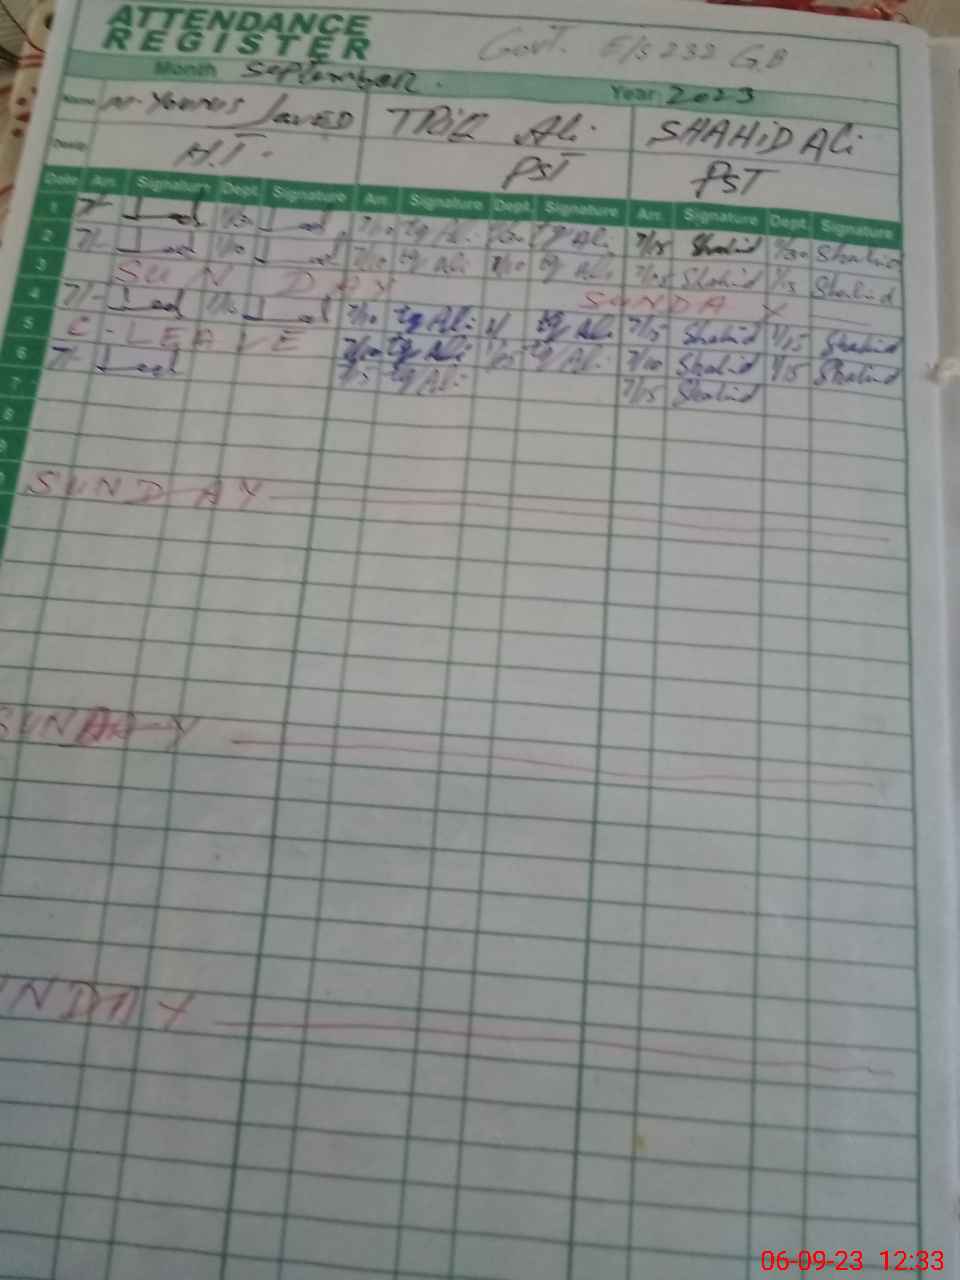 ATTENDANCE
REGISTER
Govt. E/S 232 G.B
Month September. Year 2023
Name M. Younus Javed TRiQ Ali SHAHiD ALi
Desig. H.T. PST PST
Date Arr. Signature Dept. Signature Arr. Signature Dept. Signature Arr. Signature Dept. Signature
1 7/- 7/10 tq Ali tq Ali 7/15 Shahid Shahid
2 7/- 7/10 tq Ali tq Ali Shahid 1/15 Shahid
3 SUNDAY SUNDAY
4 7/- 7/10 tq Ali tq Ali 7/15 Shahid 1/15 Shahid
5 C-LEAVE 7/10 tq Ali tq Ali 7/10 Shahid 1/15 Shahid
6 7/- 7/5 tq Ali 7/15 Shahid
7
8
SUNDAY
SUNDAY
UNDAY
06-09-23 12:33